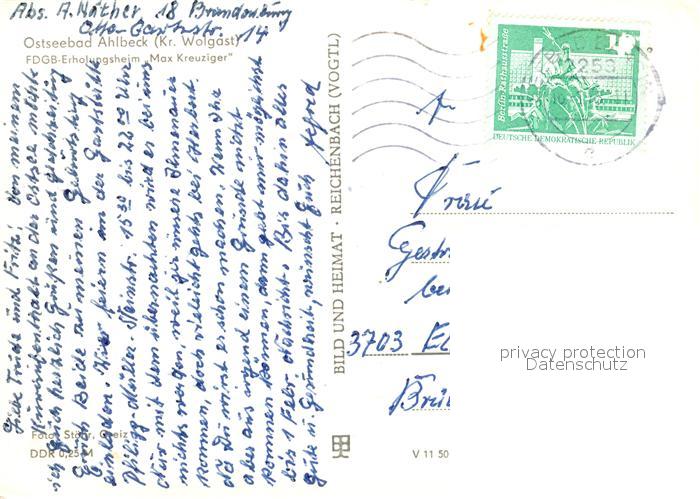 Abs. A. Näther 18 Brandenburg
Otto-Gartzstr. 14
Ostseebad Ahlbeck (Kr. Wolgast)
FDGB-Erholungsheim „Max Kreuziger"
Liebe Trude und Fritz! Von meinem
Kuraufenthalt an der Ostsee möchte
ich Euch herzlich Grüßen und gleichzeitig
Euch Beide zu meinem Geburtstag
einladen. Wir feiern in der Gaststätte
15 30 bis 22 00 Uhr
Nur mit dem übernachten wird es bei uns
nichts werden, weil wir unsere
kommen, doch vielleicht gehts bei Herbert
Na Du wirst es schon machen. Wenn Ihr
aber aus irgend einem Grunde nicht
kommen können dann gebt mir möglichst
bis 1 Febr. Nachricht. Bis dahin alles
Gute u. Gesundheit, wünscht Euch Alfred
Foto: Stöhr, Greiz
DDR 0,25 M
BILD UND HEIMAT · REICHENBACH (VOGTL)
V 11 50
Berlin, Rathausstraße
10
DEUTSCHE DEMOKRATISCHE REPUBLIK
2253
An
Frau
Gestr
bei
3703 El
Brü
privacy protection
Datenschutz